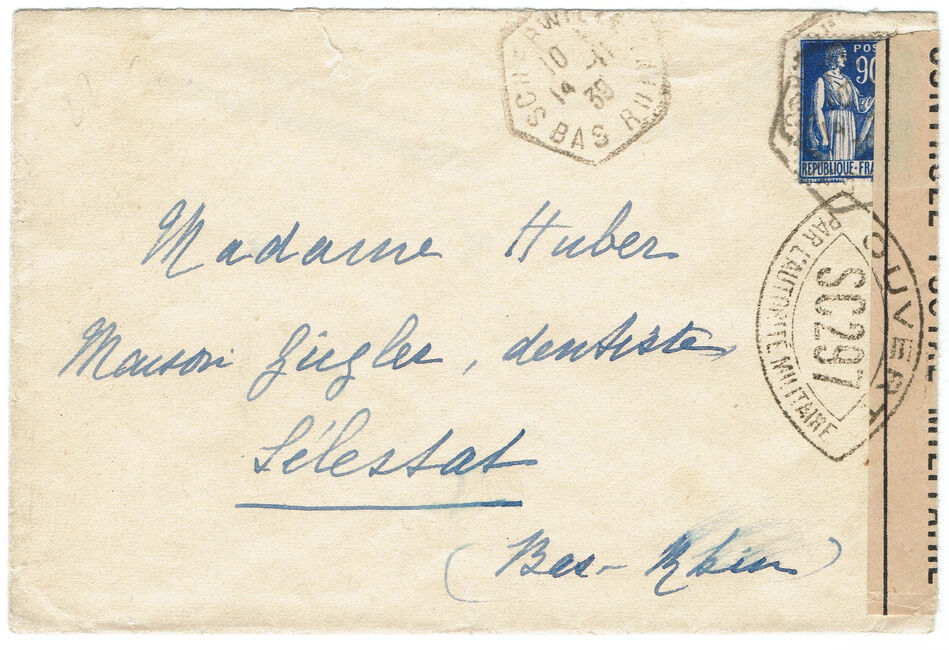 SCHERWILLER
10 -11
14 39
BAS RHIN
POS
90
REPUBLIQUE-FRA
OUVERT
PAR L'AUTORITÉ MILITAIRE
SC297
CONTROLE POSTAL MILITAIRE
Madame Huber
Maison Giegler, dentiste
Sélestat
(Bas-Rhin)